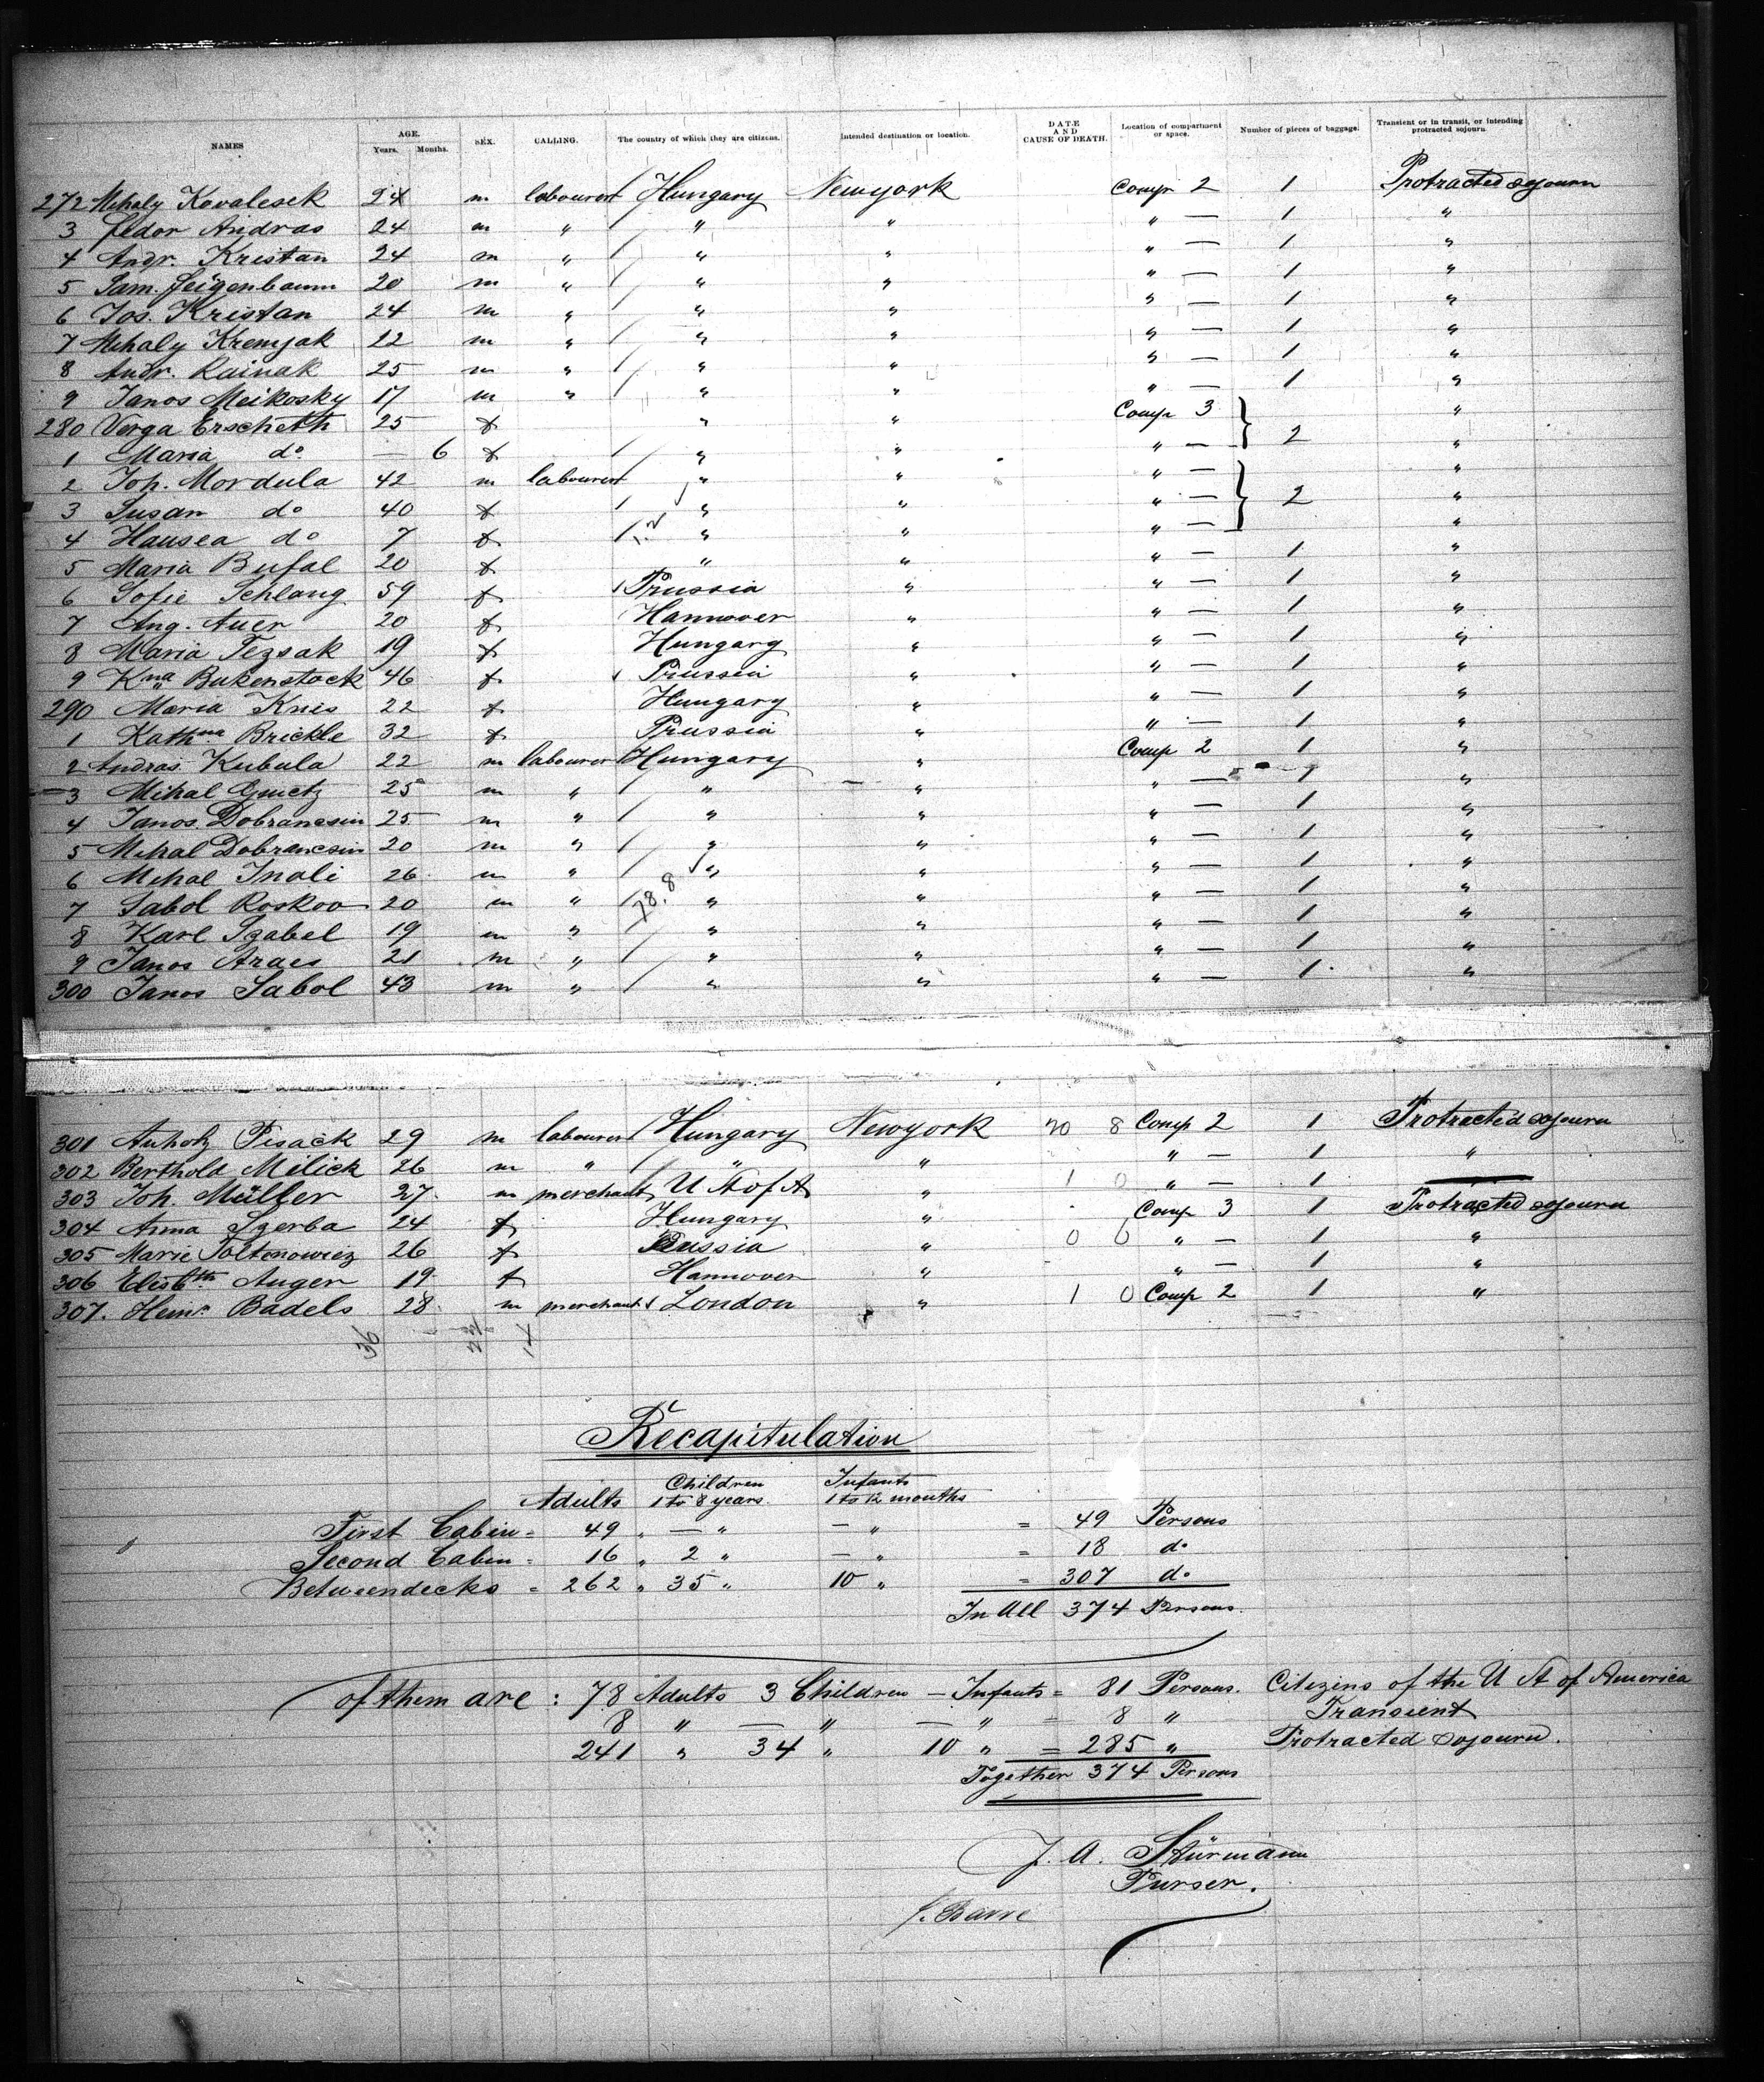 NAMES AGE. Years. Months. SEX. CALLING. The country of which they are citizens. Intended destination or location. DATE AND CAUSE OF DEATH. Location of compartment or space. Number of pieces of baggage. Transient or in transit, or intending protracted sojourn.
272 Mihaly Kovalesek 24 m labourer Hungary Newyork Comp 2 1 Protracted sojourn
3 Fedor Andras 24 m " " " " — 1 "
4 Andr. Kristan 24 m " " " " — 1 "
5 Sam. Feigenbaum 20 m " " " " — 1 "
6 Jos. Kristan 24 m " " " " — 1 "
7 Mihaly Kremjak 22 m " " " " — 1 "
8 Andr. Rainak 25 m " " " " — 1 "
9 Janos Meikosky 17 m " " " " — 1 "
280 Verga Erscheth 25 f " " Comp 3 } 2 "
1 Maria do — 6 f " " " — "
2 Joh. Mordula 42 m labourer " " " — } 2 "
3 Susan do 40 f " " " — "
4 Hausea do 7 f " " " — "
5 Maria Bufal 20 f " " " — 1 "
6 Sofie Schlang 59 f Prussia " " — 1 "
7 Aug. Auer 20 f Hannover " " — 1 "
8 Maria Tezsak 19 f Hungary " " — 1 "
9 Kna Bukenstock 46 f Prussia " " — 1 "
290 Maria Knis 22 f Hungary " " — 1 "
1 Kathna Brickle 32 f Prussia " " — 1 "
2 Andras Kubula 22 m labourer Hungary " Comp 2 1 "
3 Mihal 25 m " " " " — 1 "
4 Janos Dobrancsin 25 m " " " " — 1 "
5 Mihal Dobrancsin 20 m " " " " — 1 "
6 Mihal Inali 26 m " " " " — 1 "
7 Sabol Roskoo 20 m " 78.8 " " " — 1 "
8 Karl Szabel 19 m " " " " — 1 "
9 Janos Araes 21 m " " " " — 1 "
300 Janos Sabol 43 m " " " " — 1 "
301 Anhotz Pisack 29 m labourer Hungary Newyork 70 8 Comp 2 1 Protracted sojourn
302 Berthold Milick 26 m " " " " — 1 "
303 Joh. Müller 27 m merchant U St of A " 1 0 " — 1 —
304 Anna Szerba 24 f Hungary " Comp 3 1 Protracted sojourn
305 Marie Toltenowicz 26 f Russia " 0 0 " — 1 "
306 Elisbth Auger 19 f Hannover " " — 1 "
307. Henr. Badels 28 m merchant London " 1 0 Comp 2 1 "
36 22 14
Recapitulation
Adults Children 1 to 8 years. Infants 1 to 12 months
First Cabin = 49 " — " — " = 49 Persons
Second Cabin = 16 " 2 " — " = 18 do
Betweendecks = 262 " 35 " 10 " = 307 do
In All 374 Persons.
of them are : 78 Adults 3 Children — Infants = 81 Persons. Citizins of the U St of America
8 " — " — " = 8 " Transient
241 " 34 " 10 " = 285 " Protracted sojourn.
Together 374 Persons
J. A. Stürmann
Purser.
J. Barre